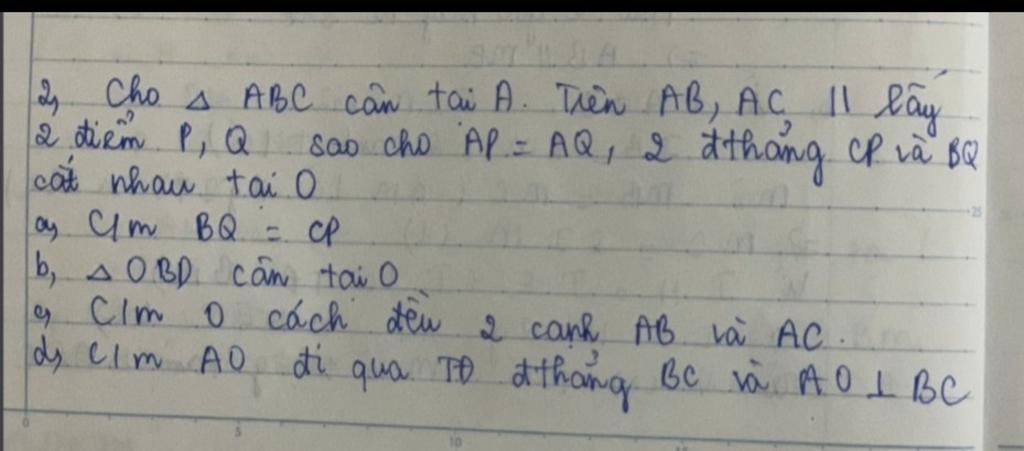 2, Cho △ ABC cân tại A. Trên AB, AC // lấy
2 điểm P, Q sao cho AP = AQ, 2 đthẳng CP và BQ
cắt nhau tại O
a, C/m BQ = CP
b, △ OBD cân tại O
c, C/m O cách đều 2 cạnh AB và AC.
d, C/m AO đi qua TĐ đthẳng BC và AO ⊥ BC
0 5 10 25